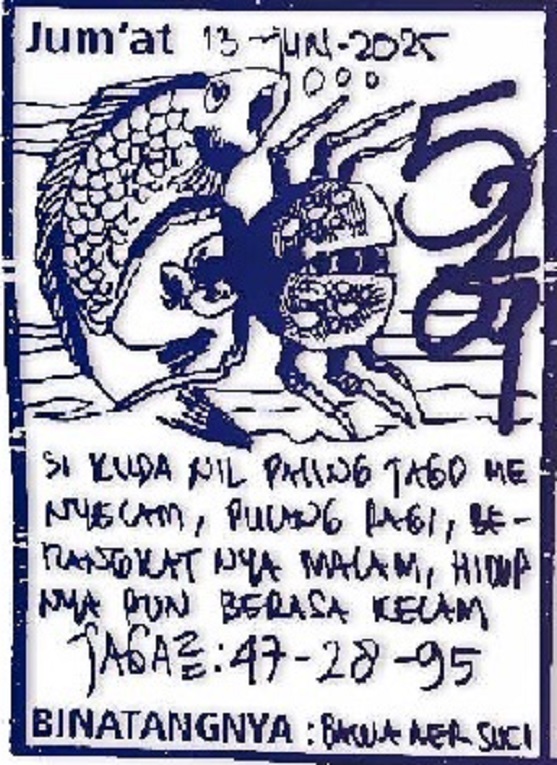 Jum'at 13-JUNI-2025
SI KUDA NIL PALING JAGO ME
NYELAM, PULANG PAGI, BE-
RANGKAT NYA MALAM, HIDUP
NYA PUN BERASA KELAM
JAGA2: 47-28-95
BINATANGNYA : SUCI